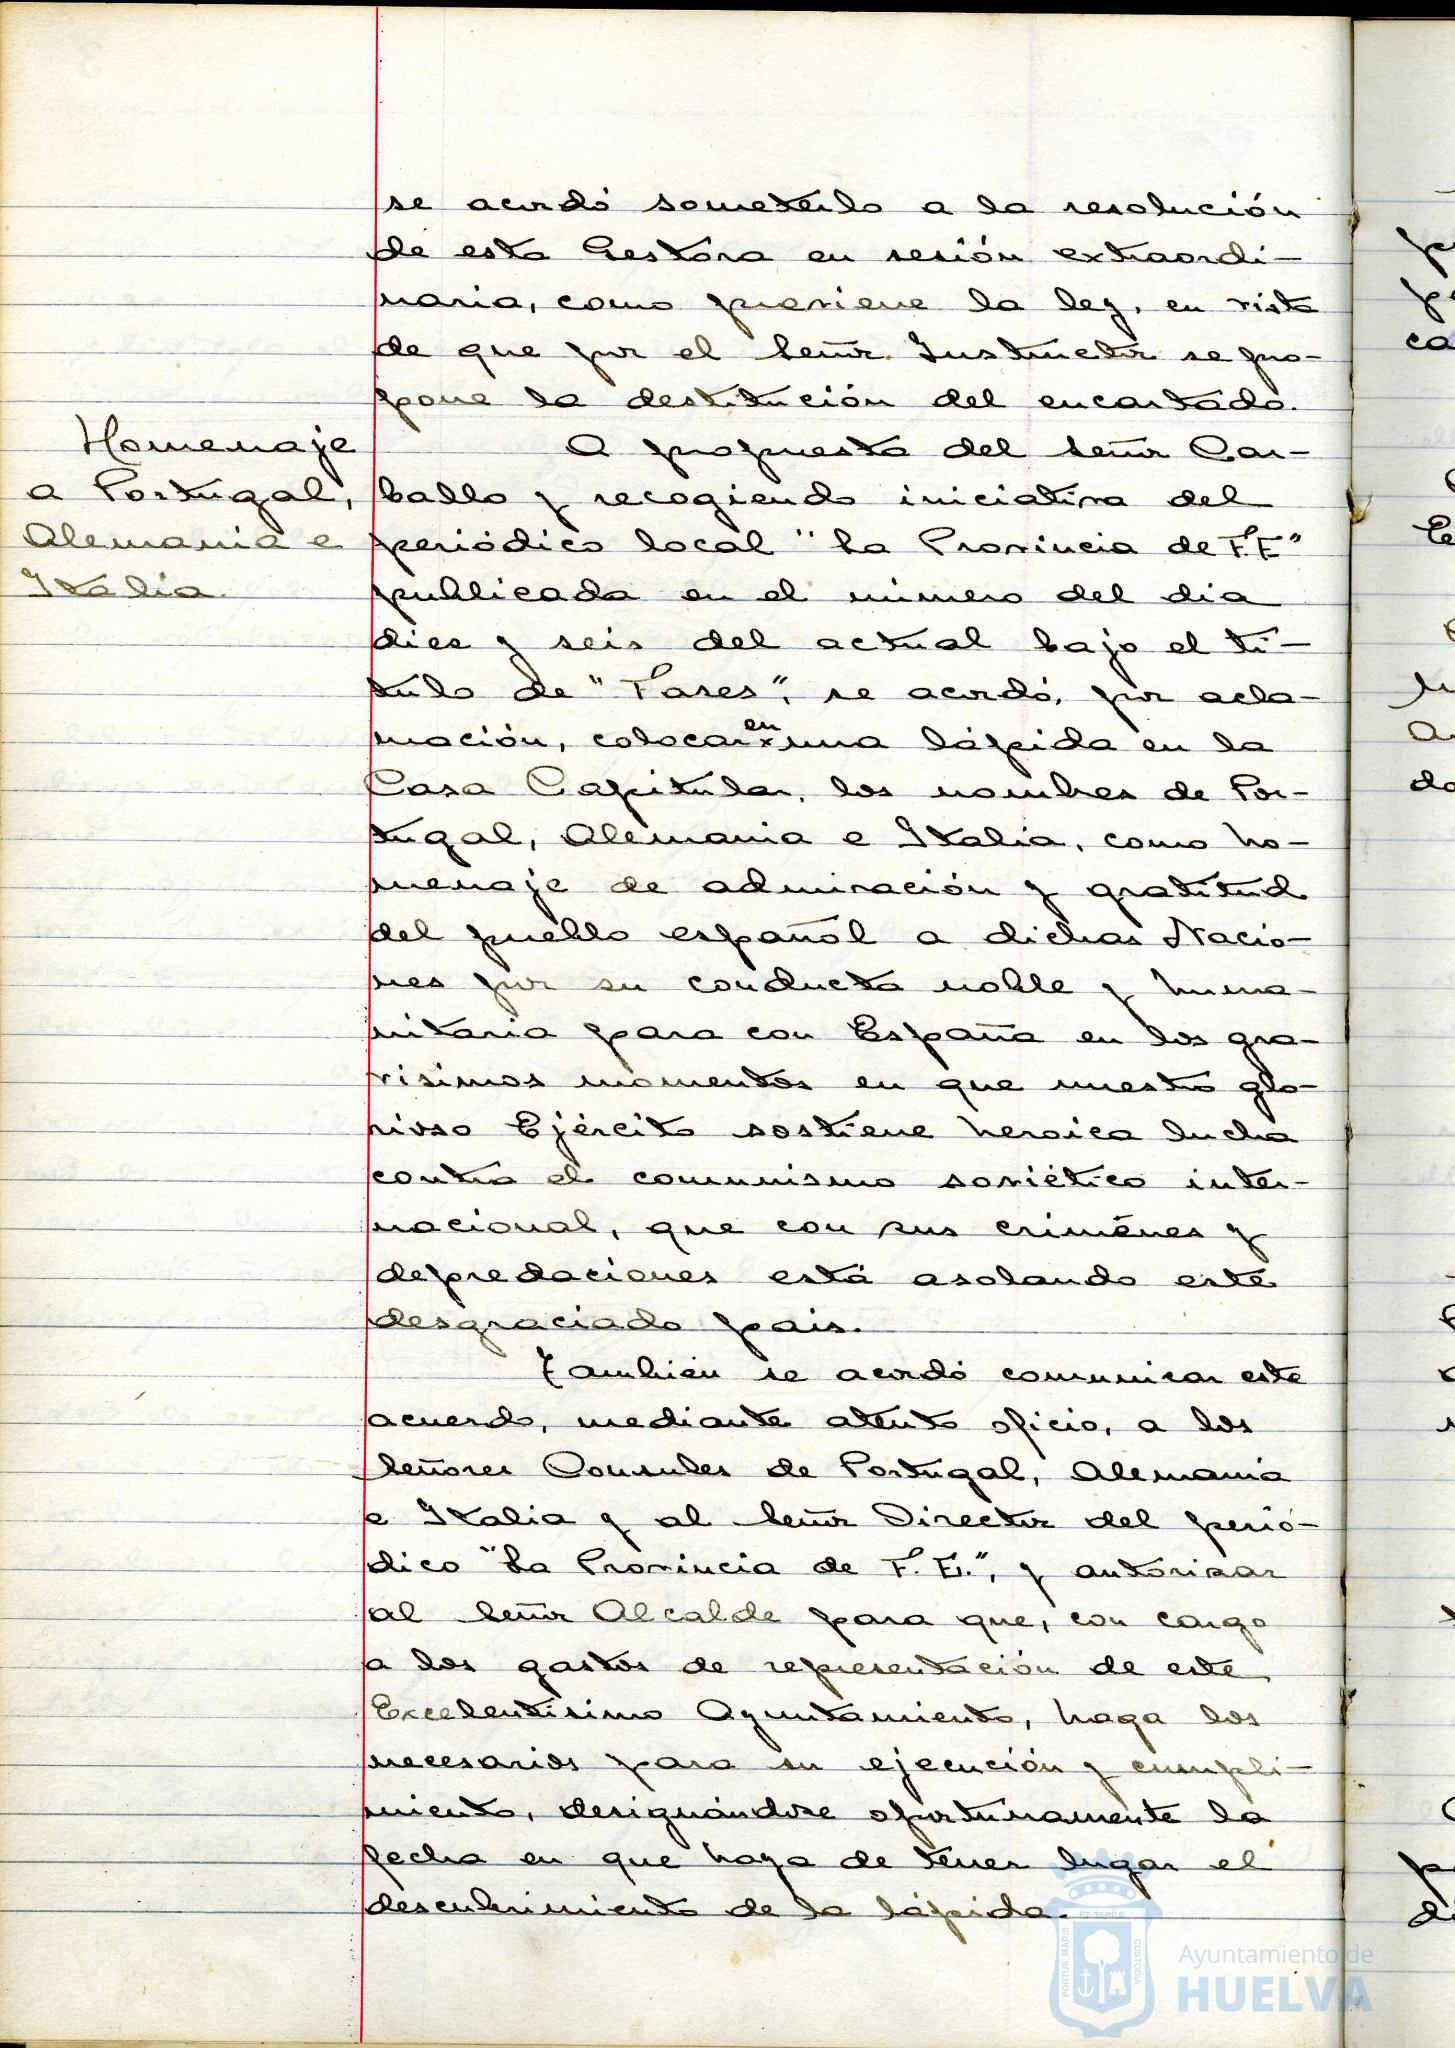 se acordó someterlo a la resolución
de esta Gestora en sesión extraordi-
naria, como previene la ley, en vista
de que por el Señor Instructor se pro-
pone la destitución del encartado.
Homenaje
a Portugal,
Alemania e
Italia.
A propuesta del Señor Car-
ballo y recogiendo iniciativa del
periódico local "La Provincia de F.E"
publicada en el número del dia
diez y seis del actual bajo el tí-
tulo de "Fases", se acordó, por acla-
mación, colocar en una lápida en la
Casa Capitular, los nombres de Por-
tugal, Alemania e Italia, como ho-
menaje de admiración y gratitud
del pueblo español a dichas Nacio-
nes por su conducta noble y huma-
nitaria para con España en los gra-
visimos momentos en que nuestro glo-
rioso Ejército sostiene heroica lucha
contra el comunismo soviético inter-
nacional, que con sus crimenes y
depredaciones está asolando este
desgraciado pais.
También se acordó comunicar este
acuerdo, mediante atento oficio, a los
Señores Consules de Portugal, Alemania
e Italia y al Señor Director del perió-
dico "La Provincia de F. E.", y autorizar
al Señor Alcalde para que, con cargo
a los gastos de representación de este
Excelentisimo Ayuntamiento, haga los
necesarios para su ejecución y cumpli-
miento, designándose oportunamente la
fecha en que haya de tener lugar el
descubrimiento de la lápida.
PORTUS MARIS ET TERRÆ CUSTODIA
Ayuntamiento de
HUELVA